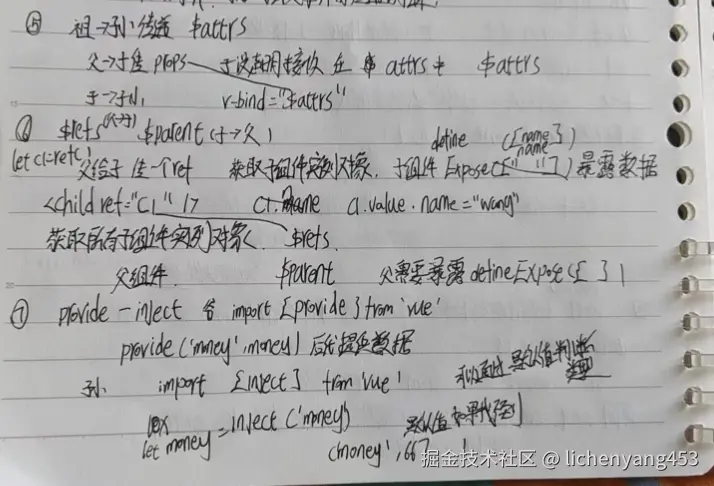 ⑤ 祖→孙 传递 $attrs
父→子 传 props 子没有用接收 在 $attrs中 $attrs
子→子小 v-bind="$attrs"
⑥ $refs(父→子) $parent(子→父) define ([name])
let c1=ref() 父给子 传一个ref 获取子组件实例对象. 子组件 Expose([" "]) name 暴露数据
<child ref="c1" /> c1.name c1.value.name="wang"
获取所有子组件实例对象 $refs.
父组件. $parent 父需要暴露 defineExpose([ ])
⑦ provide-inject import [provide] from 'vue'
provide('money',money) 后代提供数据
孙 import [inject] from 'vue' 可以通过默认值判断
let money=inject('money') 默认值 如果找不到
('money',667
掘金技术社区 @ lichenyang453